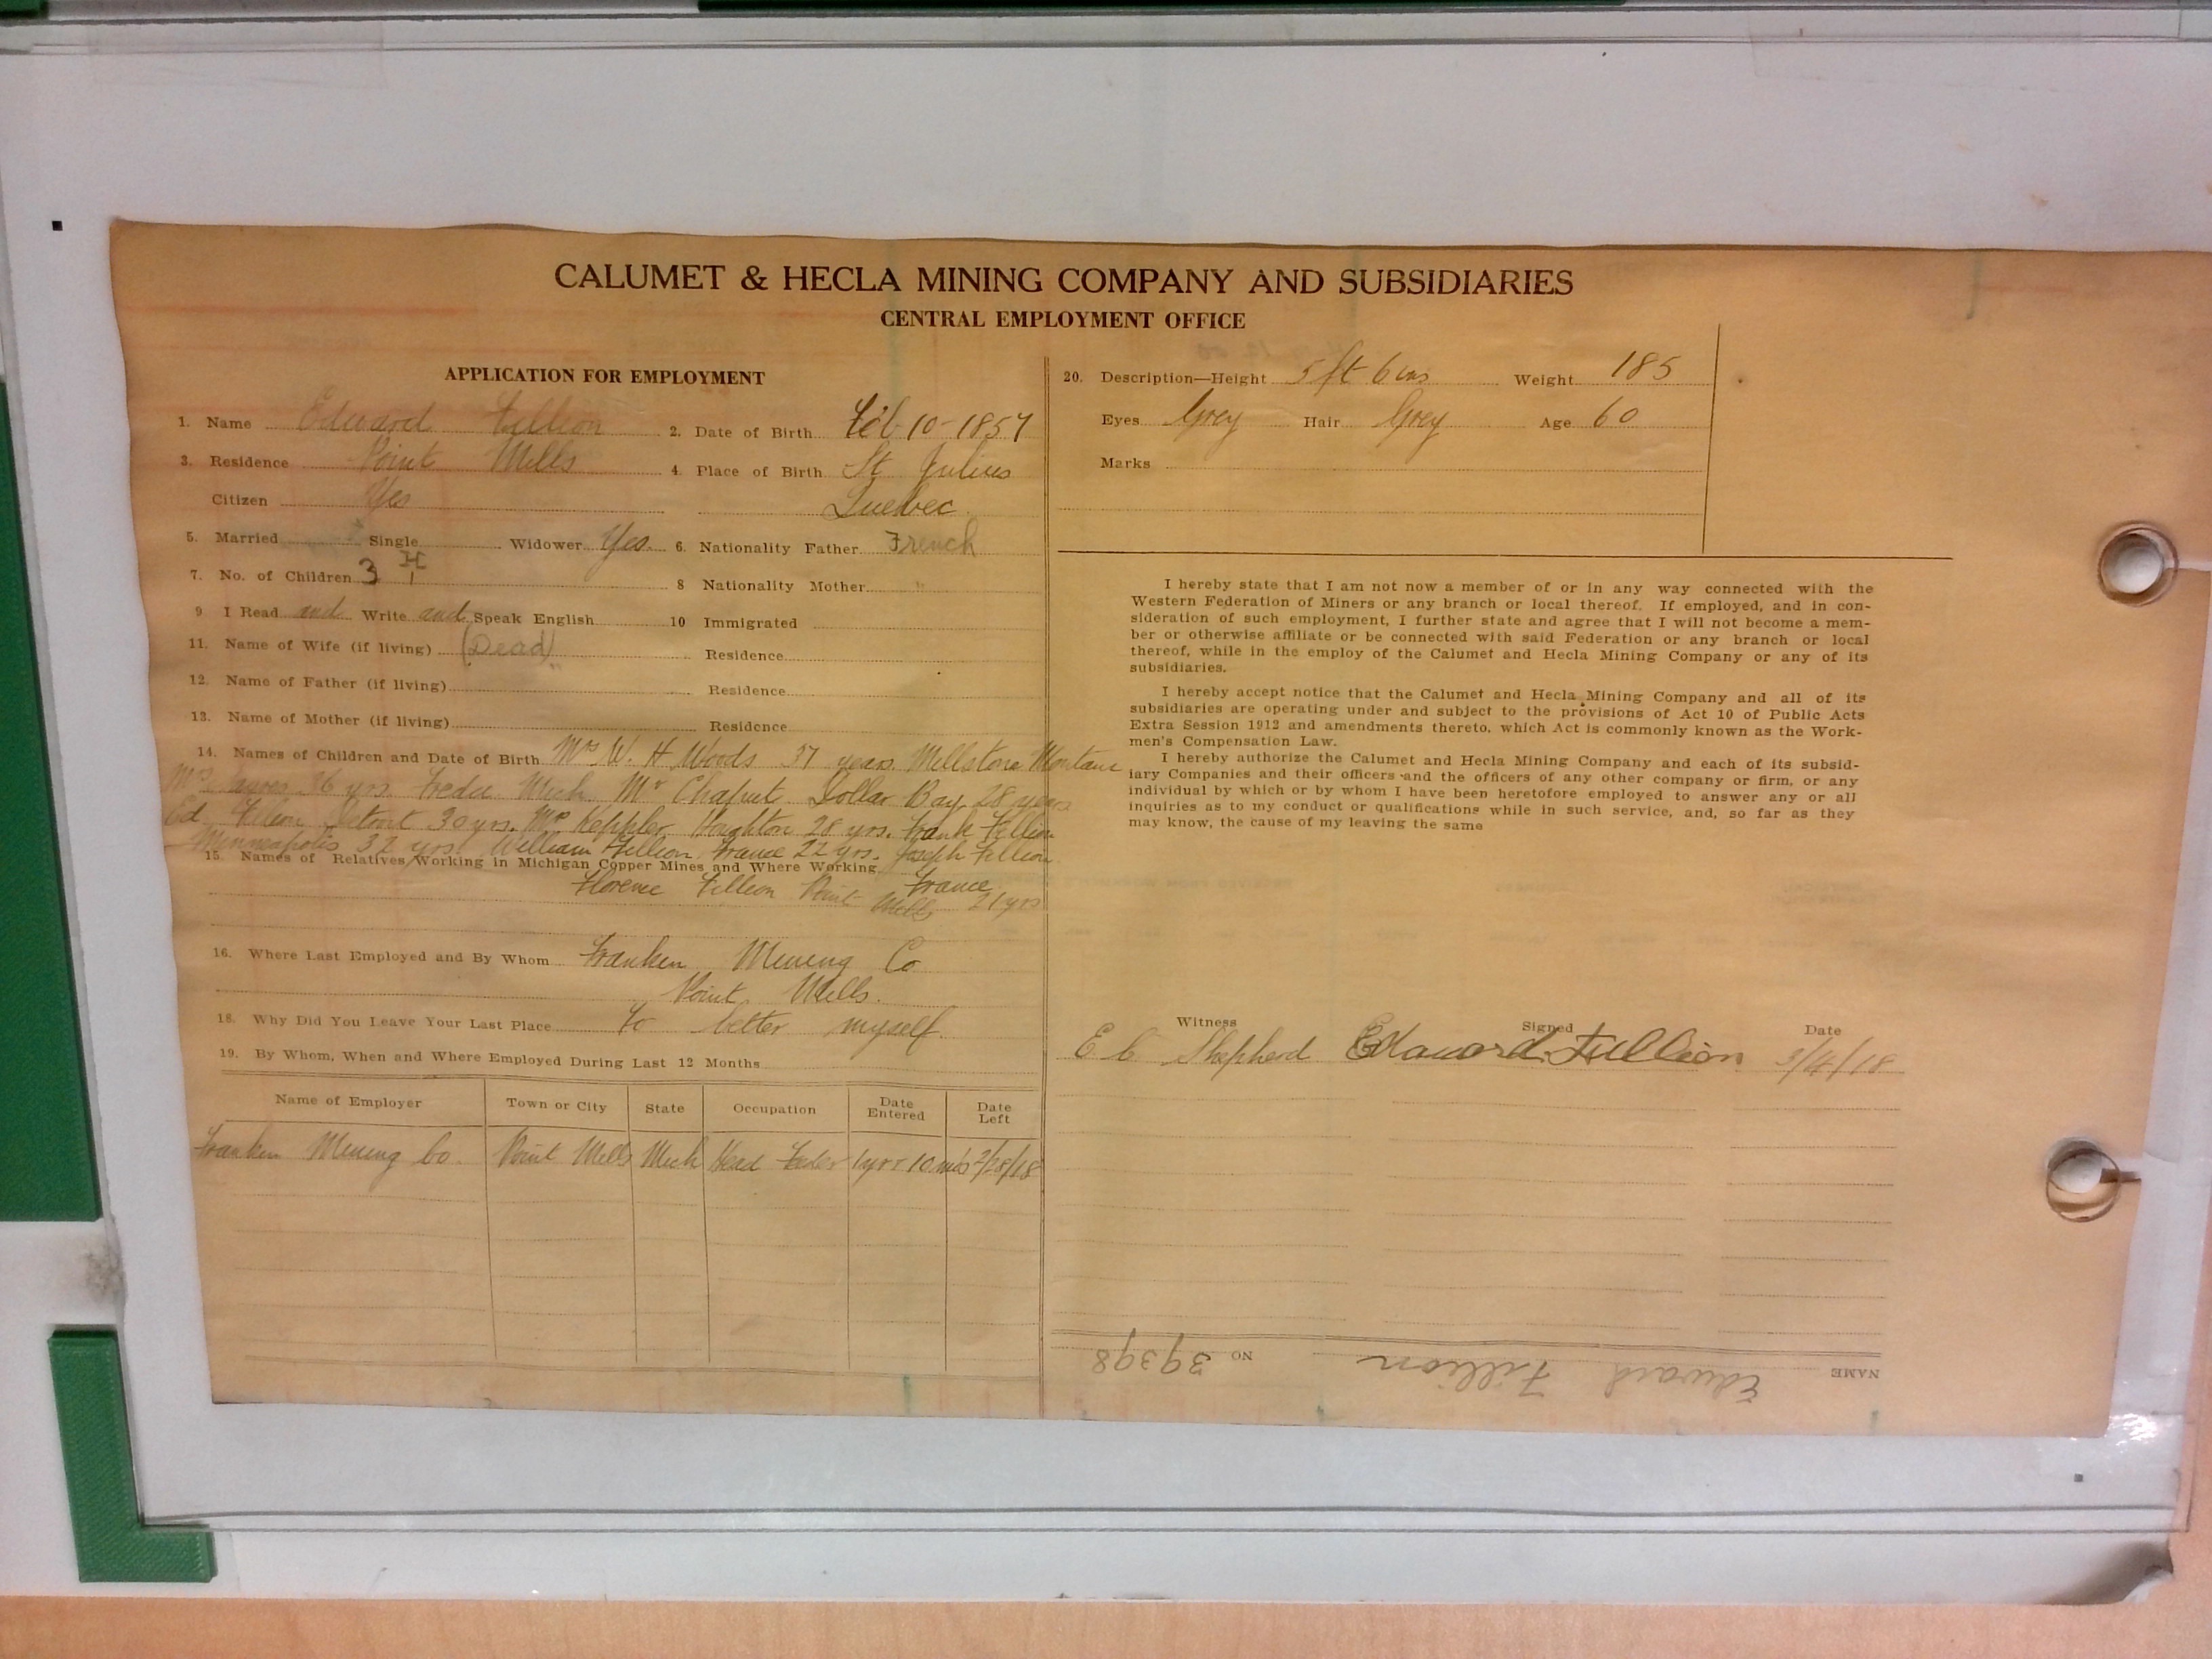 CALUMET & HECLA MINING COMPANY AND SUBSIDIARIES
CENTRAL EMPLOYMENT OFFICE
APPLICATION FOR EMPLOYMENT
1. Name Edward Fillion 2. Date of Birth Feb 10-1857
3. Residence Point Mills 4. Place of Birth St Julius
Citizen Yes Quebec
5. Married Single Widower Yes. 6. Nationality Father French
7. No. of Children 3 8 Nationality Mother "
9 I Read and Write and Speak English 10 Immigrated
11. Name of Wife (if living) (Dead) Residence
12. Name of Father (if living) Residence
13. Name of Mother (if living) Residence
14. Names of Children and Date of Birth Mrs W. H Woods 37 years. Millstone Montana
Mrs 36 yrs. Mich Mr Chaput Dollar Bay 28 years
Ed Fillion Detroit 30 yrs. Mr Keppler Houghton 28 yrs. Frank Fillion
Minneapolis 32 yrs. William Fillion, France 22 yrs. Joseph Fillion
15. Names of Relatives Working in Michigan Copper Mines and Where Working France
Florence Fillion Point Mills 21 yrs
16. Where Last Employed and By Whom Franken Mining Co
Point Mills.
18. Why Did You Leave Your Last Place To better myself.
19. By Whom, When and Where Employed During Last 12 Months
Name of Employer Town or City State Occupation Date Entered Date Left
Franken Mining Co. Point Mills Mich Head Feeder 1 yr 10 mts 2/28/18
20. Description—Height 5 ft 6 ins Weight 185
Eyes Grey Hair Grey Age 60
Marks
I hereby state that I am not now a member of or in any way connected with the
Western Federation of Miners or any branch or local thereof. If employed, and in con-
sideration of such employment, I further state and agree that I will not become a mem-
ber or otherwise affiliate or be connected with said Federation or any branch or local
thereof, while in the employ of the Calumet and Hecla Mining Company or any of its
subsidiaries.
I hereby accept notice that the Calumet and Hecla Mining Company and all of its
subsidiaries are operating under and subject to the provisions of Act 10 of Public Acts
Extra Session 1912 and amendments thereto, which Act is commonly known as the Work-
men's Compensation Law.
I hereby authorize the Calumet and Hecla Mining Company and each of its subsid-
iary Companies and their officers and the officers of any other company or firm, or any
individual by which or by whom I have been heretofore employed to answer any or all
inquiries as to my conduct or qualifications while in such service, and, so far as they
may know, the cause of my leaving the same
Witness Signed Date
E C Shepherd Edaword Fillion 3/4/18
NAME Edward Fillion NO 39398